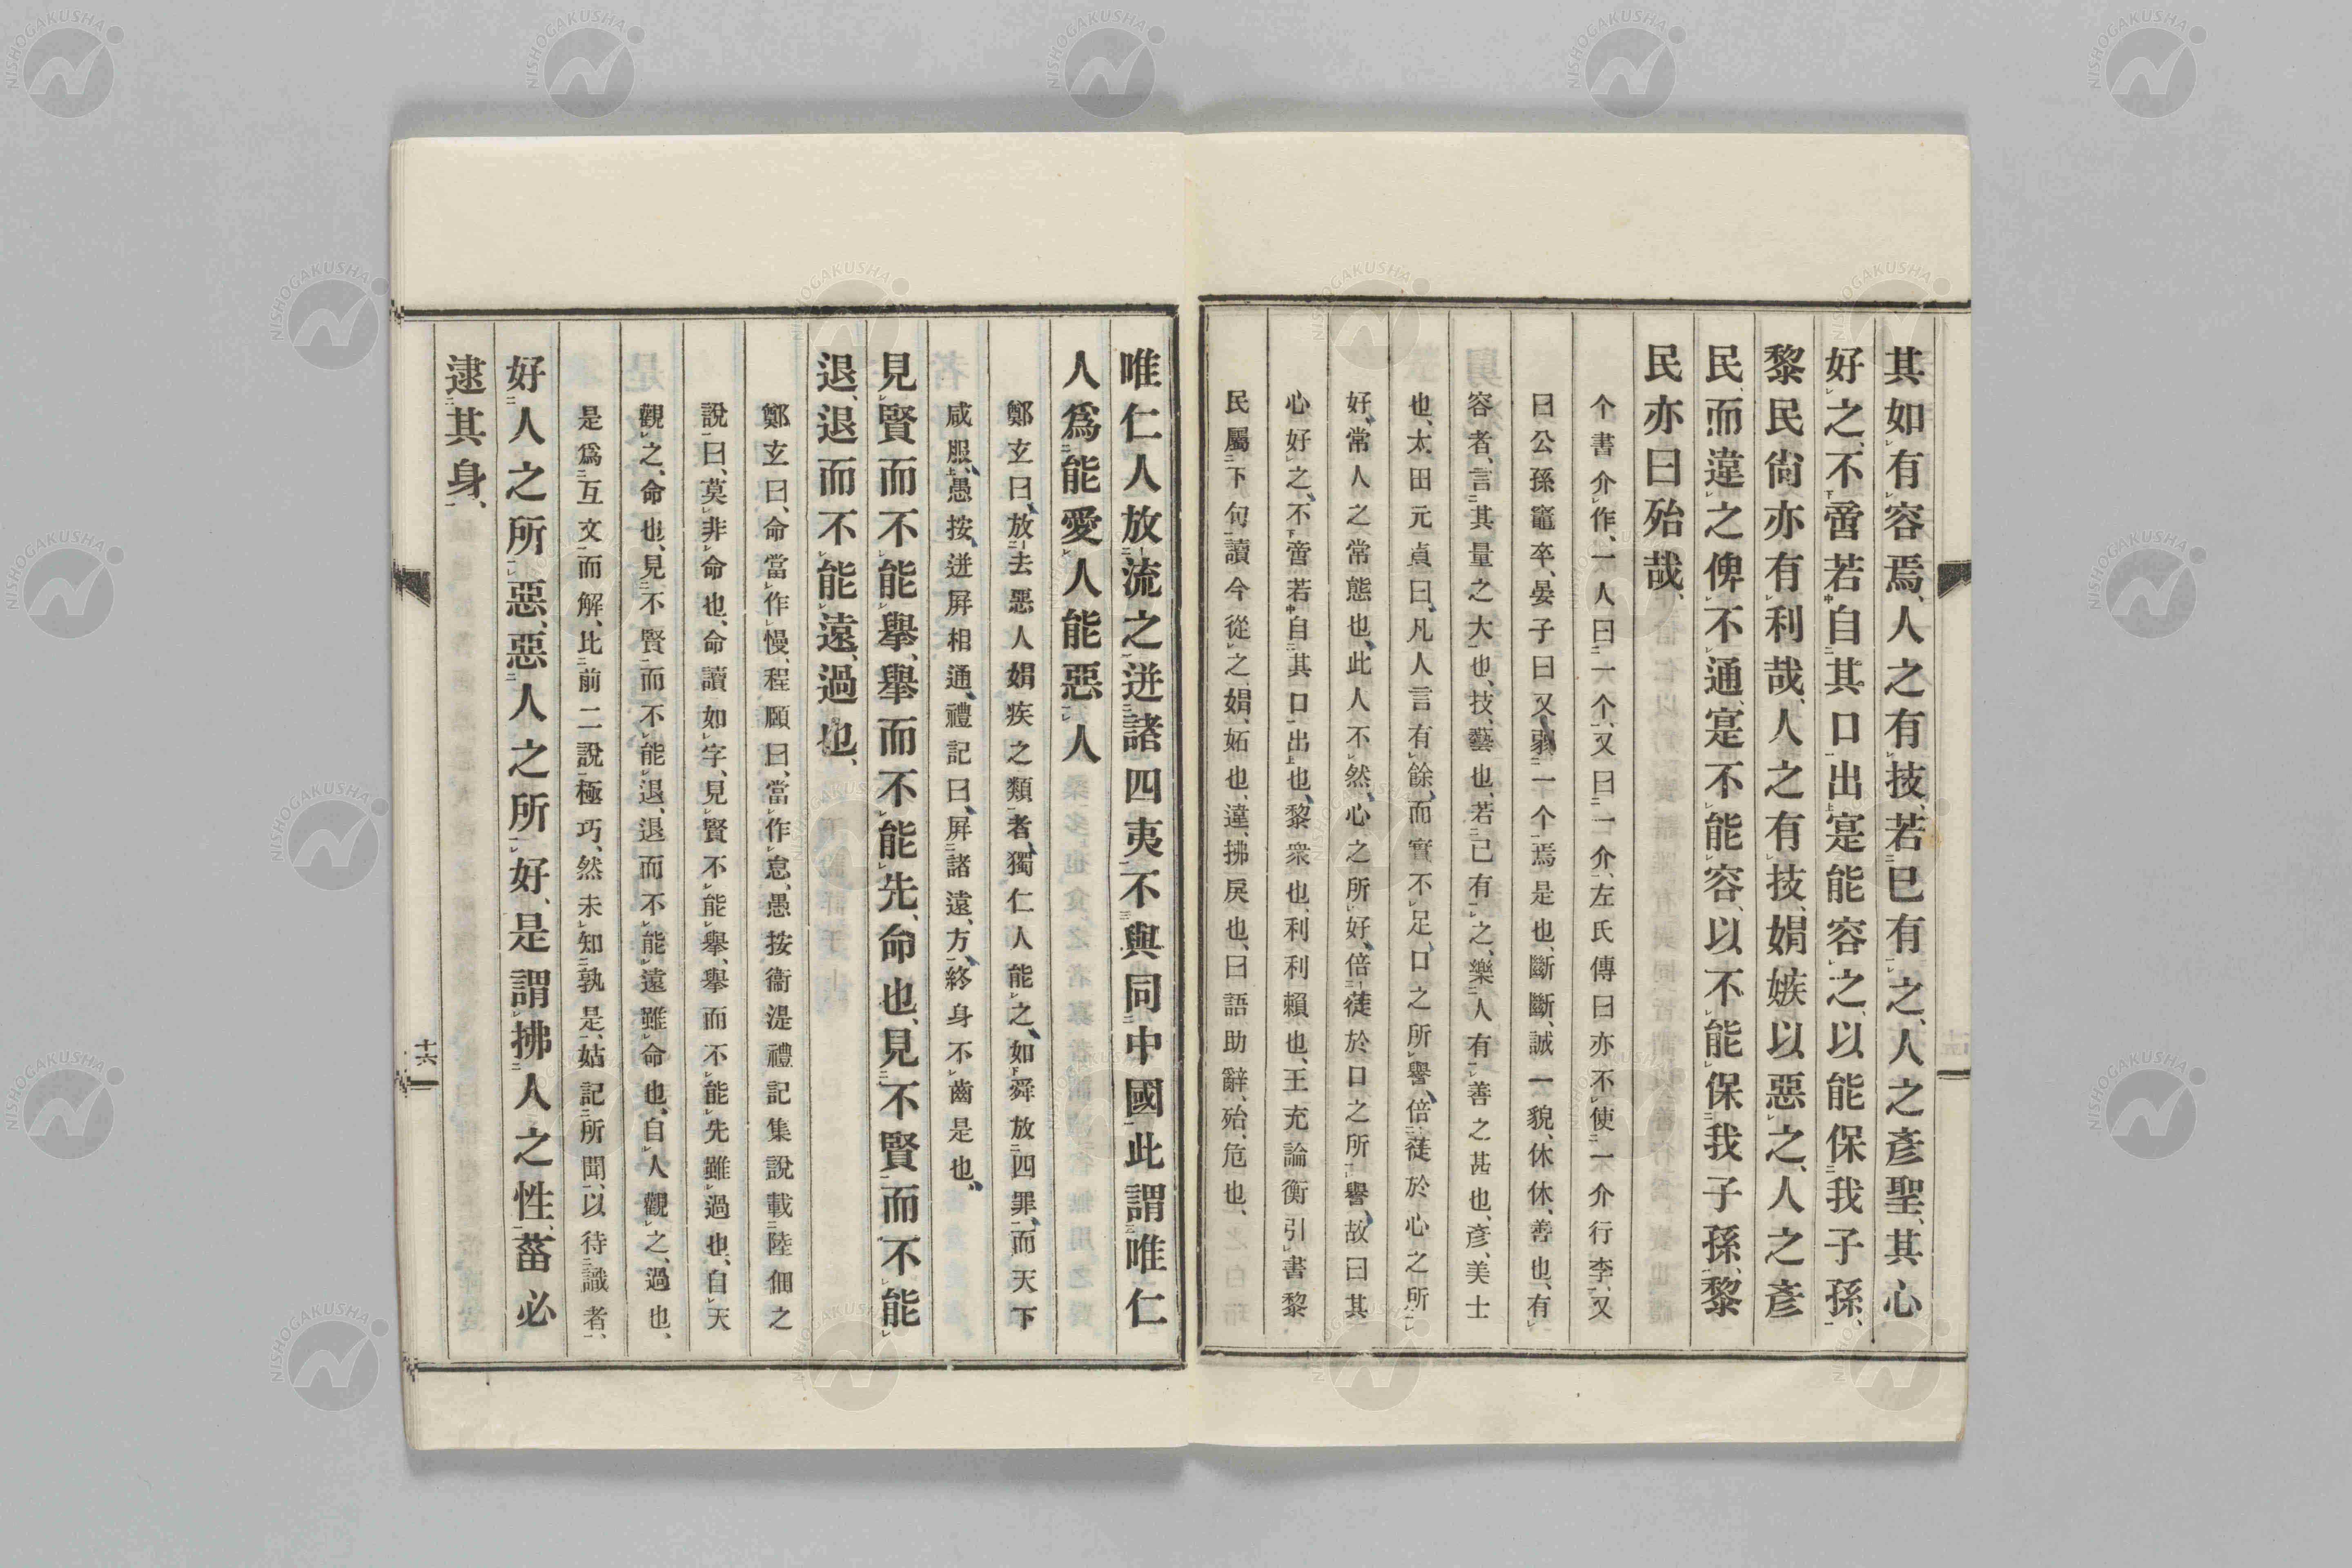 其如有容焉、人之有技、若已有之、人之彥聖、其心
好之、不啻若自其口出寔能容之、以能保我子孫、
黎民尙亦有利哉、人之有技、娼嫉以惡之、人之彥
民、而違之俾不通、寔不能容、以不能保我子孫、黎
民亦曰殆哉、
个書介作、一人曰一个、又曰一介、左氏傳曰亦不使一介行李、又
曰公孫竈卒、晏子曰又弱一个焉是也、斷斷、誠一貌、休休、善也、有
容者、言其量之大也、技、藝也、若已有之、樂人有善之甚也、彥、美士
也、太田元貞曰、凡人言有餘、而實不足、口之所譽、倍蓰於心之所
好、常人之常態也、此人不然、心之所好、倍蓰於口之所譽、故曰其
心好之、不啻若自其口出也、黎衆也、利利賴也、王充論衡引書黎
民屬下句讀今從之、娼、妬也、違、拂戾也、曰語助辭、殆、危也、
唯仁人放流之迸諸四夷不與同中國此謂唯仁
人爲能愛人能惡人
鄭玄曰、放去惡人娼疾之類者、獨仁人能之、如舜放四罪、而天下
咸服、愚按、迸屏相通、禮記曰、屏諸遠方、終身不齒是也、
見賢而不能擧、擧而不能先、命也、見不賢而不能
退、退而不能遠、過也、
鄭玄曰、命當作慢、程願曰、當作怠、愚按衞湜禮記集說載陸佃之
說曰、莫非命也、命讀如字、見賢不能擧、擧而不能先雖過也、自天
觀之、命也、見不賢而不能退、退而不能遠雖命也、自人觀之、過也、
是爲互文而解、比前二說極巧、然未知孰是、姑記所聞、以待識者、
好人之所惡、惡人之所好、是謂拂人之性、菑必
逮其身、
十六
NISHOGAKUSHA